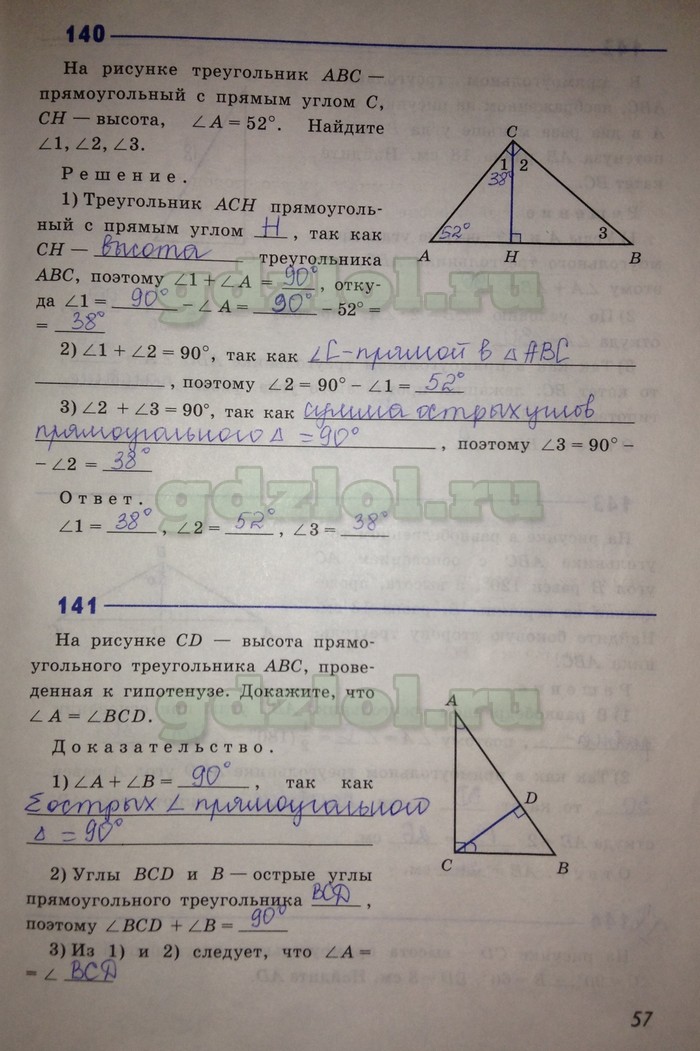 140
На рисунке треугольник ABC —
прямоугольный с прямым углом C,
CH — высота, ∠A = 52°. Найдите
∠1, ∠2, ∠3.
Решение.
1) Треугольник ACH прямоуголь-
ный с прямым углом H, так как
CH — высота треугольника
ABC, поэтому ∠1 + ∠A = 90°, отку-
да ∠1 = 90° – ∠A = 90° – 52° =
= 38°
2) ∠1 + ∠2 = 90°, так как ∠C-прямой в △ABC
, поэтому ∠2 = 90° – ∠1 = 52°
3) ∠2 + ∠3 = 90°, так как сумма острых углов
прямоугольного △ = 90°, поэтому ∠3 = 90° –
– ∠2 = 38°
Ответ.
∠1 = 38°, ∠2 = 52°, ∠3 = 38°
C
1 2
38°
52° 3
A H B
gdzlol.ru
gdzlol.ru
141
На рисунке CD — высота прямо-
угольного треугольника ABC, прове-
денная к гипотенузе. Докажите, что
∠A = ∠BCD.
Доказательство.
1) ∠A + ∠B = 90°, так как
Σ острых ∠ прямоугольного
△ = 90°
2) Углы BCD и B — острые углы
прямоугольного треугольника BCD,
поэтому ∠BCD + ∠B = 90°
3) Из 1) и 2) следует, что ∠A =
= ∠ BCD
A
D
C B
gdzlol.ru
57